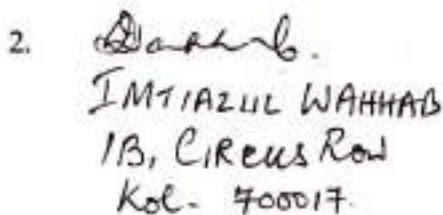 2.
IMTIAZUL WAHHAB
1B, CIRCUS ROW
Kol- 700017.